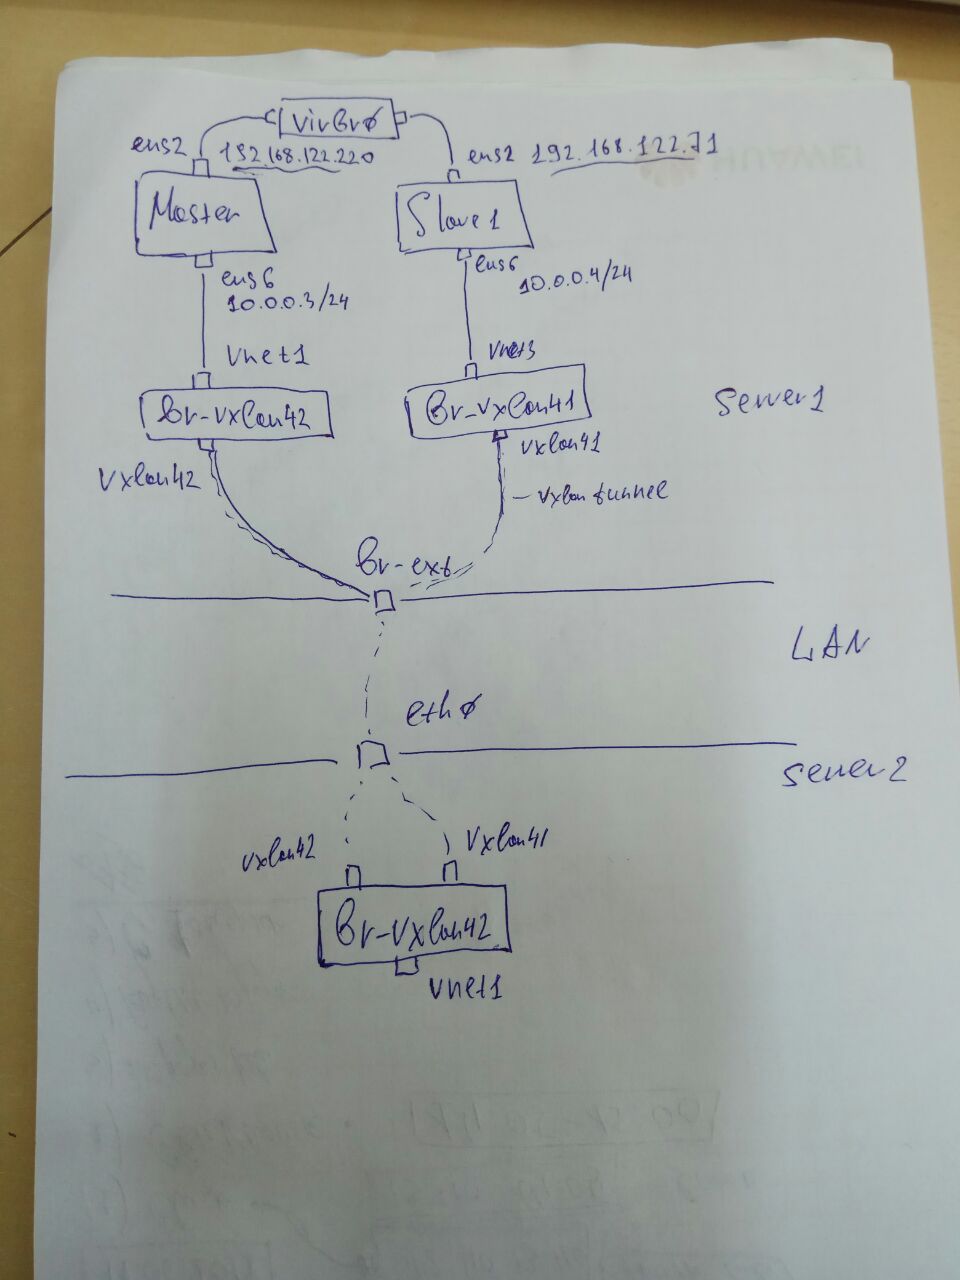 virbr0
ens2 192.168.122.220
ens2 192.168.122.71
Master
Slave1
ens6
10.0.0.3/24
ens6
10.0.0.4/24
vnet1
vnet3
br-vxlan42
br-vxlan41
Server1
vxlan42
vxlan41
vxlan tunnel
br-ext
LAN
eth0
Server2
vxlan42
vxlan41
br-vxlan42
vnet1
HUAWEI